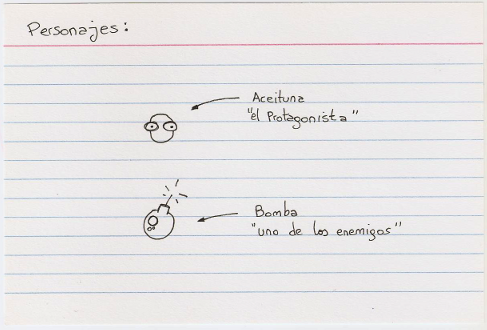 Personajes:
Aceituna
"el Protagonista"
Bomba
"uno de los enemigos"